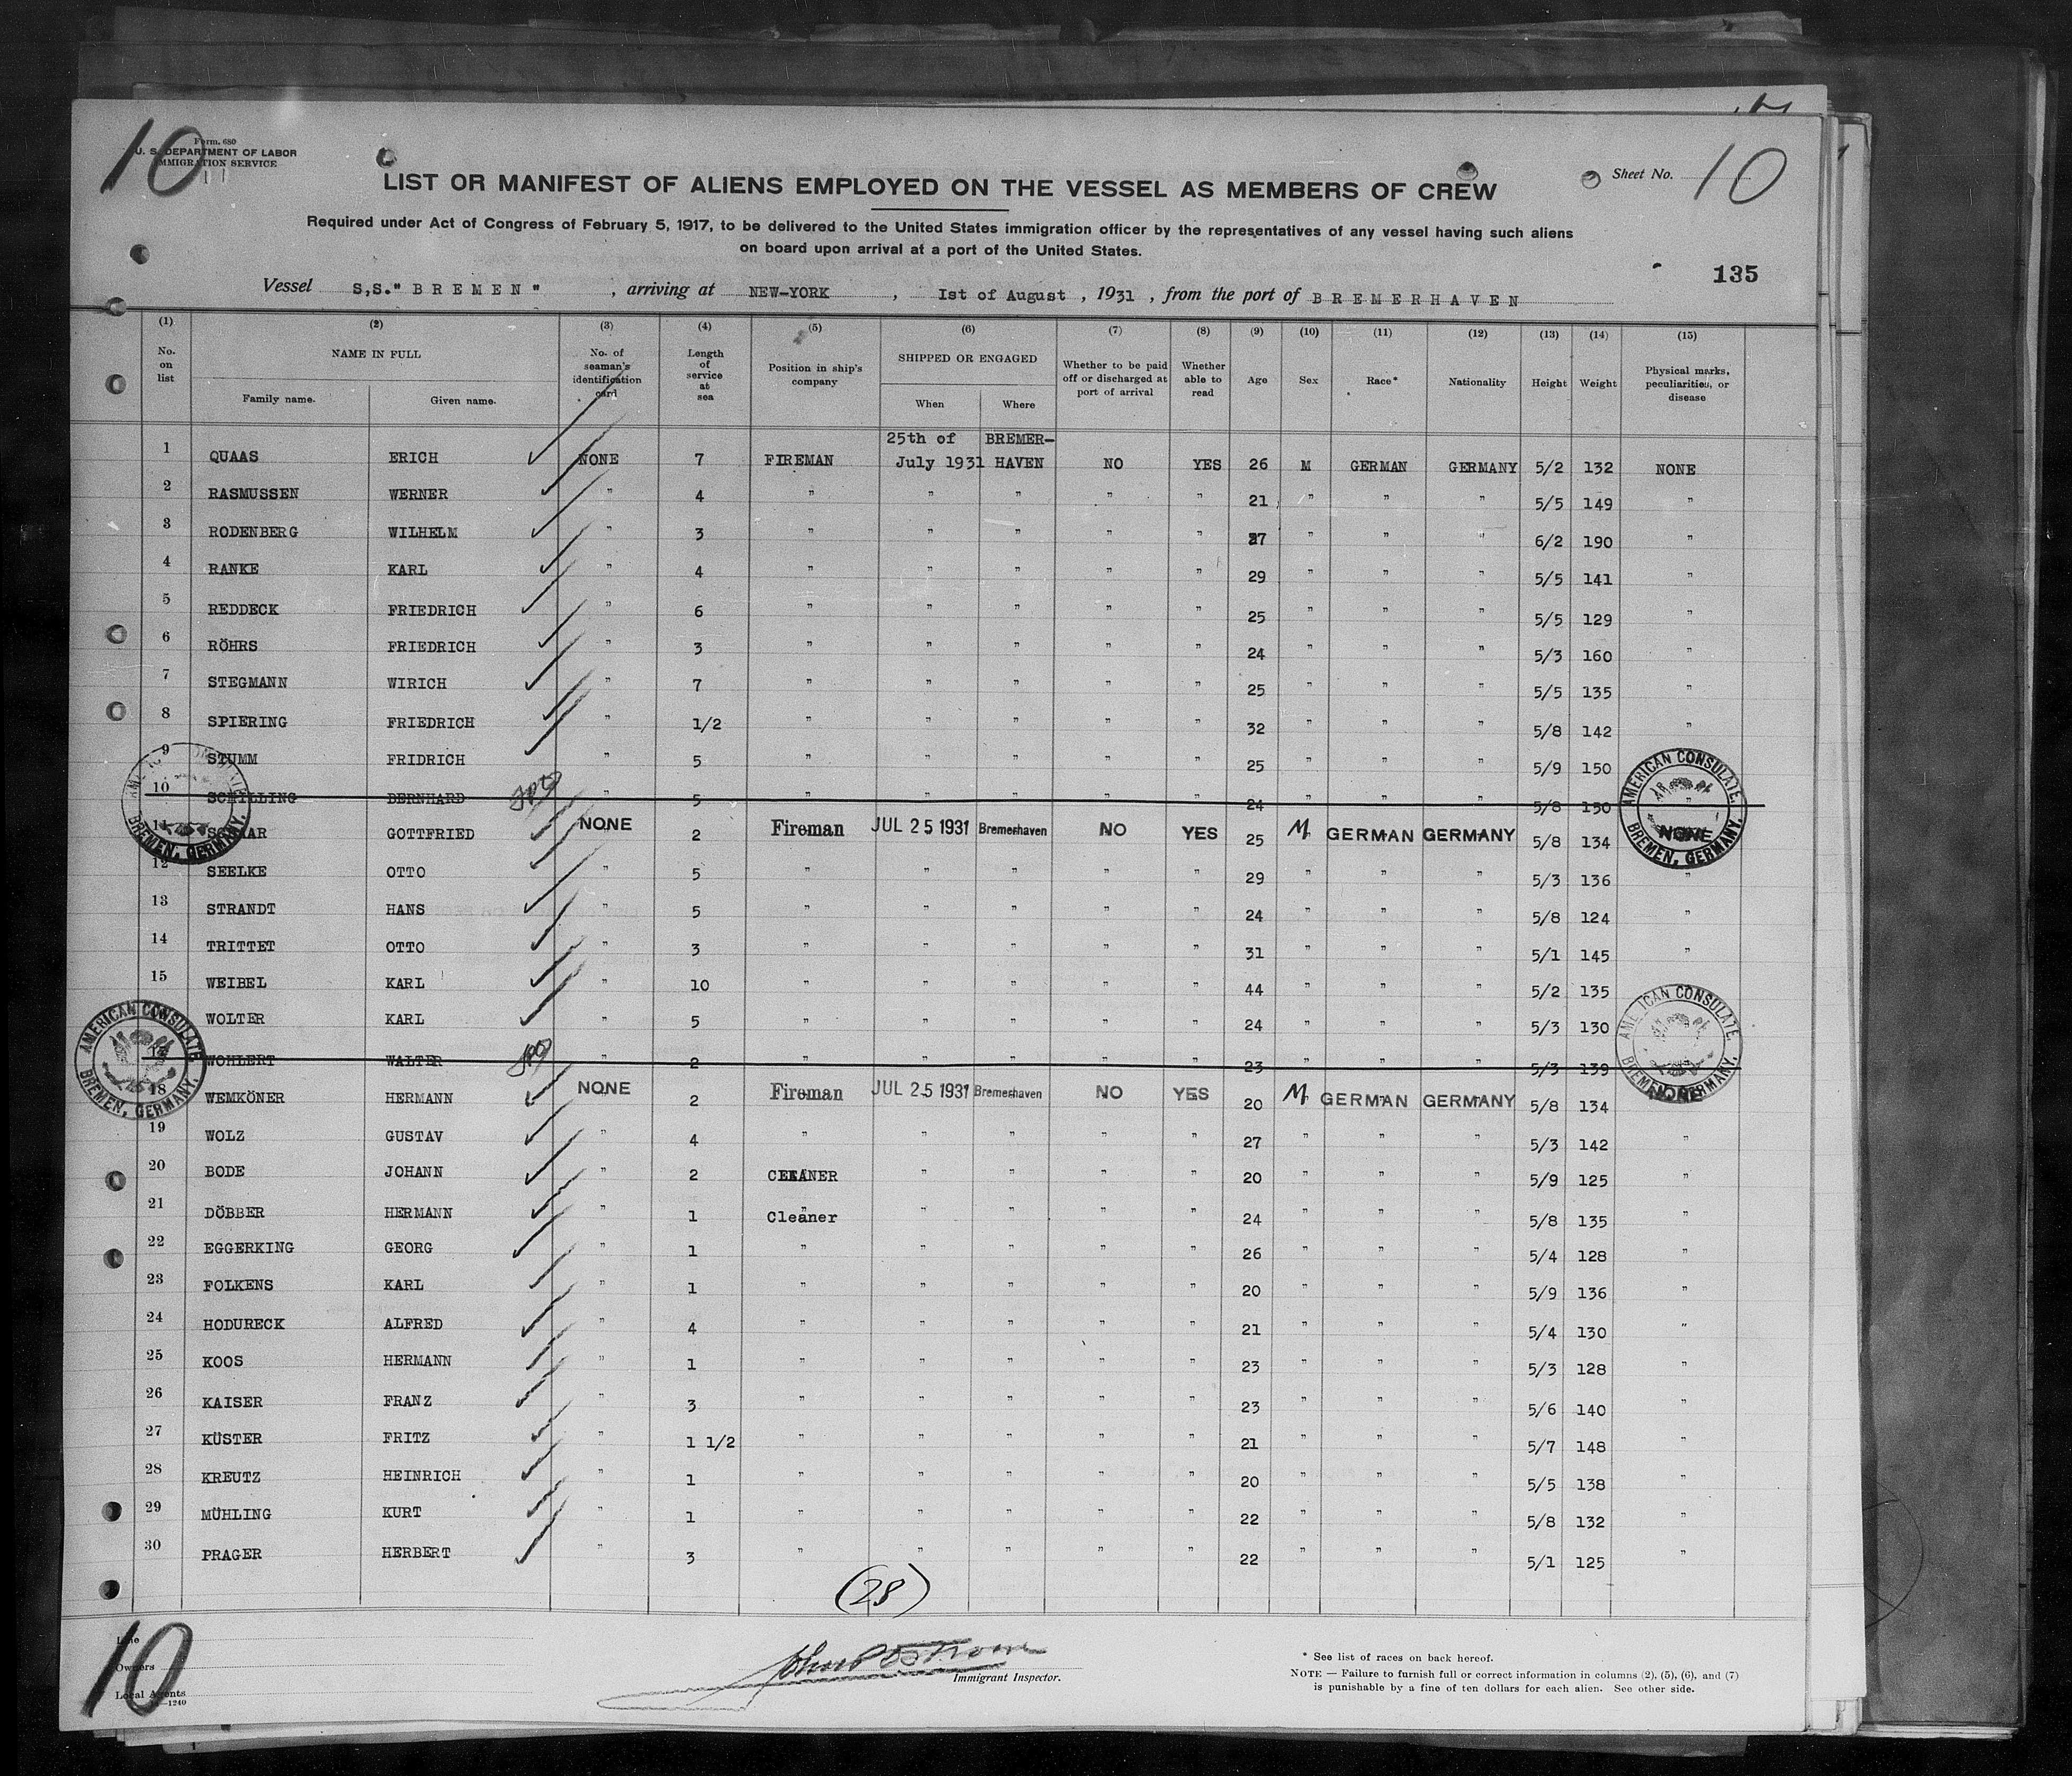 10
Form. 680
U. S. DEPARTMENT OF LABOR
IMMIGRATION SERVICE
Sheet No. 10
LIST OR MANIFEST OF ALIENS EMPLOYED ON THE VESSEL AS MEMBERS OF CREW
Required under Act of Congress of February 5, 1917, to be delivered to the United States immigration officer by the representatives of any vessel having such aliens
on board upon arrival at a port of the United States.
135
Vessel S,S." B R E M E N " , arriving at NEW-YORK , Ist of August , 1931 , from the port of B R E M E R H A V E N
(1) (2) (3) (4) (5) (6) (7) (8) (9) (10) (11) (12) (13) (14) (15)
No. on list NAME IN FULL Family name. Given name. No. of seaman's identification card Length of service at sea Position in ship's company SHIPPED OR ENGAGED When Where Whether to be paid off or discharged at port of arrival Whether able to read Age Sex Race* Nationality Height Weight Physical marks, peculiarities, or disease
25th of BREMER-
1 QUAAS ERICH NONE 7 FIREMAN July 1931 HAVEN NO YES 26 M GERMAN GERMANY 5/2 132 NONE
2 RASMUSSEN WERNER " 4 " " " " " 21 " " " 5/5 149 "
3 RODENBERG WILHELM " 3 " " " " " 27 " " " 6/2 190 "
4 RANKE KARL " 4 " " " " " 29 " " " 5/5 141 "
5 REDDECK FRIEDRICH " 6 " " " " " 25 " " " 5/5 129 "
6 RÖHRS FRIEDRICH " 3 " " " " " 24 " " " 5/3 160 "
7 STEGMANN WIRICH " 7 " " " " " 25 " " " 5/5 135 "
8 SPIERING FRIEDRICH " 1/2 " " " " " 32 " " " 5/8 142 "
9 STUMM FRIDRICH " 5 " " " " " 25 " " " 5/9 150 "
10 SCHILLING BERNHARD " 5 " " " " " 24 " " " 5/8 150 "
11 GOTTFRIED NONE 2 Fireman JUL 25 1931 Bremerhaven NO YES 25 M GERMAN GERMANY 5/8 134 NONE
12 SEELKE OTTO " 5 " " " " " 29 " " " 5/3 136 "
13 STRANDT HANS " 5 " " " " " 24 " " " 5/8 124 "
14 TRITTET OTTO " 3 " " " " " 31 " " " 5/1 145 "
15 WEIBEL KARL " 10 " " " " " 44 " " " 5/2 135 "
WOLTER KARL " 5 " " " " " 24 " " " 5/3 130
17 WOHLERT WALTER " 2 " " " " " 23 " " " 5/3 139
18 WEMKÖNER HERMANN NONE 2 Fireman JUL 25 1931 Bremerhaven NO YES 20 M GERMAN GERMANY 5/8 134 NONE
19 WOLZ GUSTAV " 4 " " " " " 27 " " " 5/3 142 "
20 BODE JOHANN " 2 CLEANER " " " " 20 " " " 5/9 125 "
21 DÖBBER HERMANN " 1 Cleaner " " " " 24 " " " 5/8 135 "
22 EGGERKING GEORG " 1 " " " " " 26 " " " 5/4 128 "
23 FOLKENS KARL " 1 " " " " " 20 " " " 5/9 136 "
24 HODURECK ALFRED " 4 " " " " " 21 " " " 5/4 130 "
25 KOOS HERMANN " 1 " " " " " 23 " " " 5/3 128 "
26 KAISER FRANZ " 3 " " " " " 23 " " " 5/6 140 "
27 KÜSTER FRITZ " 1 1/2 " " " " " 21 " " " 5/7 148 "
28 KREUTZ HEINRICH " 1 " " " " " 20 " " " 5/5 138 "
29 MÜHLING KURT " 1 " " " " " 22 " " " 5/8 132 "
30 PRAGER HERBERT " 3 " " " " " 22 " " " 5/1 125 "
AMERICAN CONSULATE
BREMEN, GERMANY.
AMERICAN CONSULATE.
BREMEN, GERMANY.
AMERICAN CONSULATE
BREMEN, GERMANY.
AMERICAN CONSULATE.
BREMEN, GERMANY.
(28)
10
Line
Owners
Local Agents
Immigrant Inspector.
* See list of races on back hereof.
NOTE — Failure to furnish full or correct information in columns (2), (5), (6), and (7)
is punishable by a fine of ten dollars for each alien. See other side.